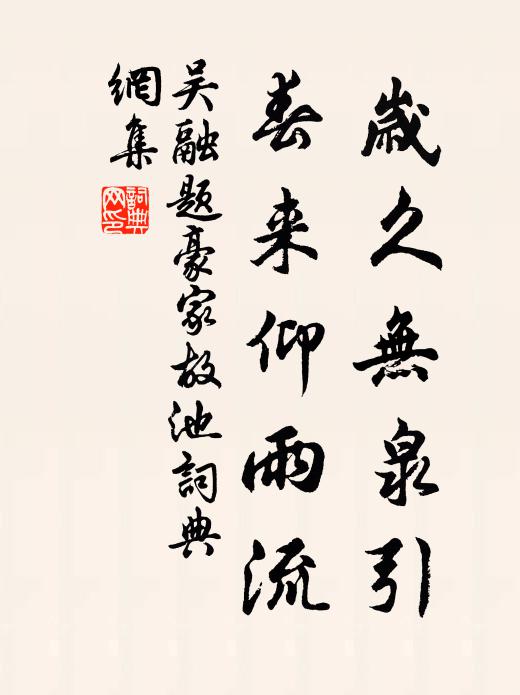 歲久無泉引
春来仰雨流
吴融題豪家故池詞典
網集
詞典網印